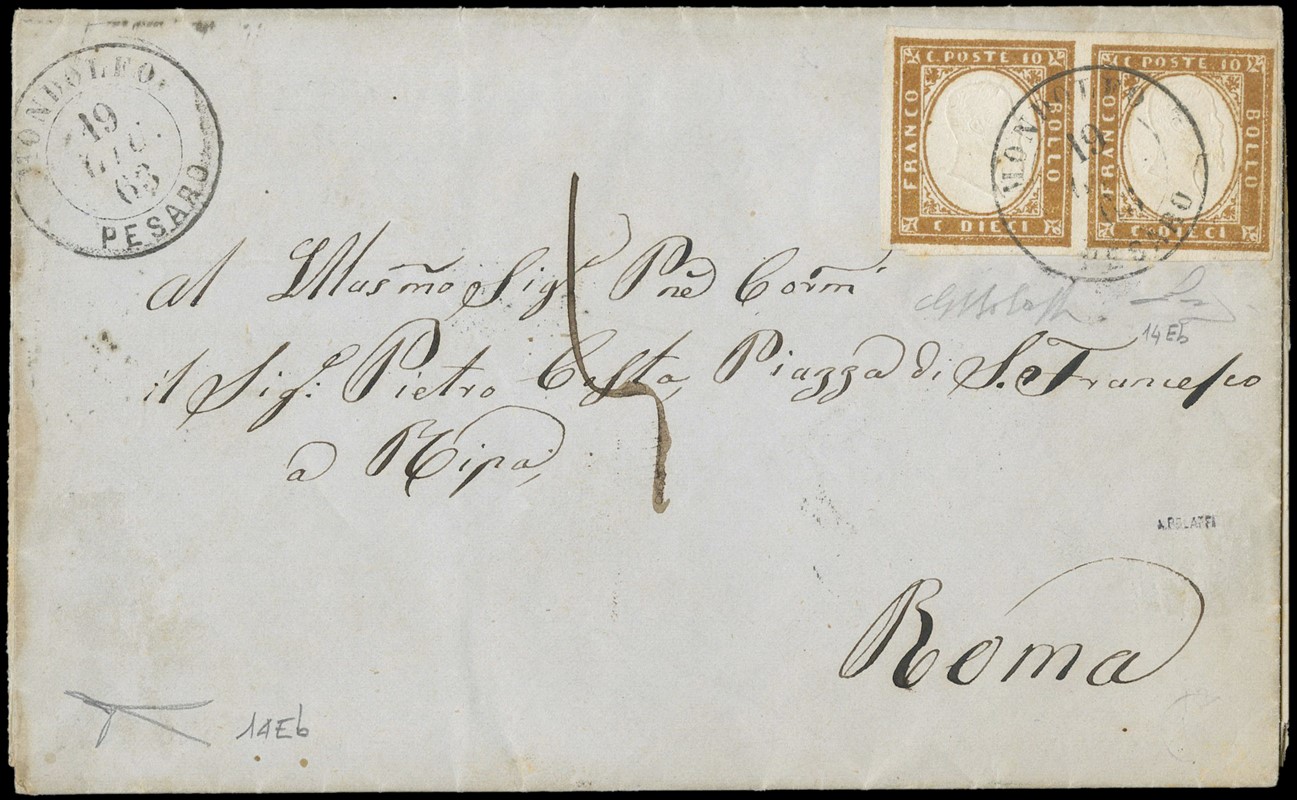 MONDOLFO
19
GIU.
63
PESARO
C. POSTE 10
FRANCO
BOLLO
C DIECI
C POSTE 10
FRANCO
BOLLO
C DIECI
MONDOLFO
19
63
PESARO
Al Illusmo Sigr Pne Comn
il Sigr. Pietro Costa, Piazza di S. Francesco
a Ripa,
14Eb
A. BOLAFFI
Roma
14Eb